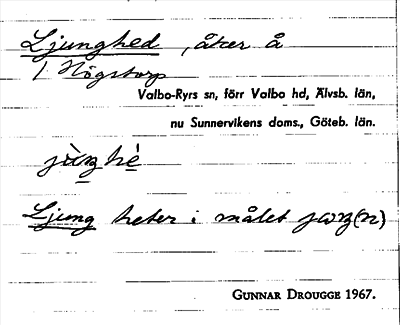 Ljunghed , åker å
1 Högstorp
Valbo-Ryrs sn, förr Valbo hd, Älvsb. län,
nu Sunnervikens doms., Göteb. län.
Ljung heter i målet
GUNNAR DROUGGE 1967.